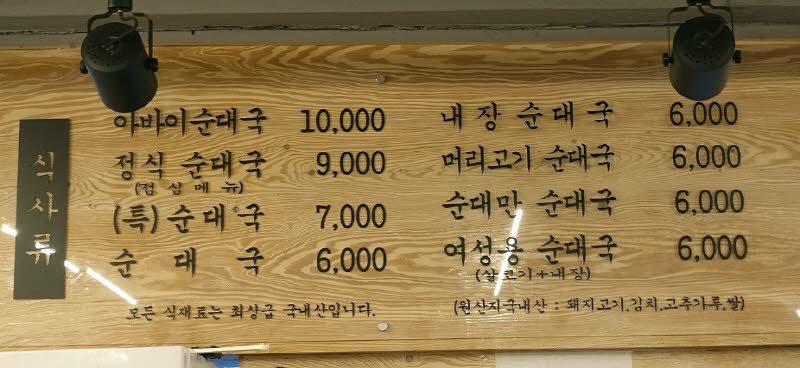 식사류
아바이순대국 10,000
정식 순대국 9,000
(점심메뉴)
(특)순대국 7,000
순대국 6,000
모든 식재료는 최상급 국내산입니다.
내장 순대국 6,000
머리고기 순대국 6,000
순대만 순대국 6,000
여성용 순대국 6,000
(살코기+내장)
(원산지국내산 : 돼지고기,김치,고추가루,쌀)